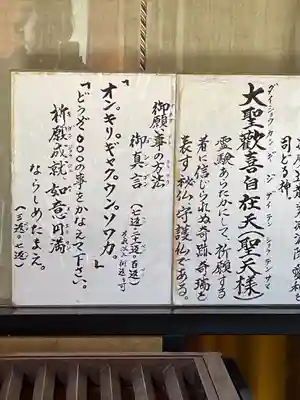 司どる神。
大聖歓喜自在天(聖天様)
ダイショウカンギジザイテンショウテンサマ
霊験あらたかにして、祈願する
者に信じられぬ奇跡、奇瑞を
表す秘仏・守護仏である。
御願い事の方法
御真言
(七返・二十一返・百返)
「オン。キリ。ギャク。ウン。ソワカ。」
「どうぞ〇〇〇の事をかなえて下さい。
祈願成就如意円満
ならしめたまえ。」
(三返・七返)